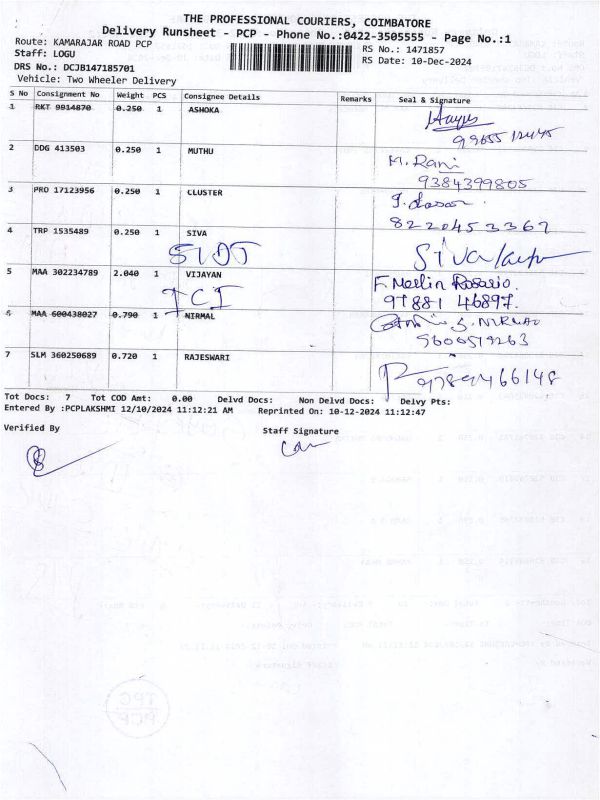 THE PROFESSIONAL COURIERS, COIMBATORE
Delivery Runsheet - PCP - Phone No.:0422-3505555 - Page No.:1
Route: KAMARAJAR ROAD PCP
RS No.: 1471857
Staff: LOGU
RS Date: 10-Dec-2024
DRS No.: DCJB147185701
Vehicle: Two Wheeler Delivery
S No Consignment No Weight PCS Consignee Details Remarks Seal & Signature
1 RKT 9914870 0.250 1 ASHOKA
2 DDG 413503 0.250 1 MUTHU
M. Rani
9384399805
3 PRO 17123956 0.250 1 CLUSTER
8220453367
4 TRP 1535489 0.250 1 SIVA
5 MAA 302234789 2.040 1 VIJAYAN
F. Merlin Rosario.
97881 46897.
6 MAA 600438027 0.790 1 NIRMAL
9600519263
7 SLM 360250689 0.720 1 RAJESWARI
9789466148
Tot Docs: 7 Tot COD Amt: 0.00 Delvd Docs: Non Delvd Docs: Delvy Pts:
Entered By :PCPLAKSHMI 12/10/2024 11:12:21 AM Reprinted On: 10-12-2024 11:12:47
Verified By Staff Signature